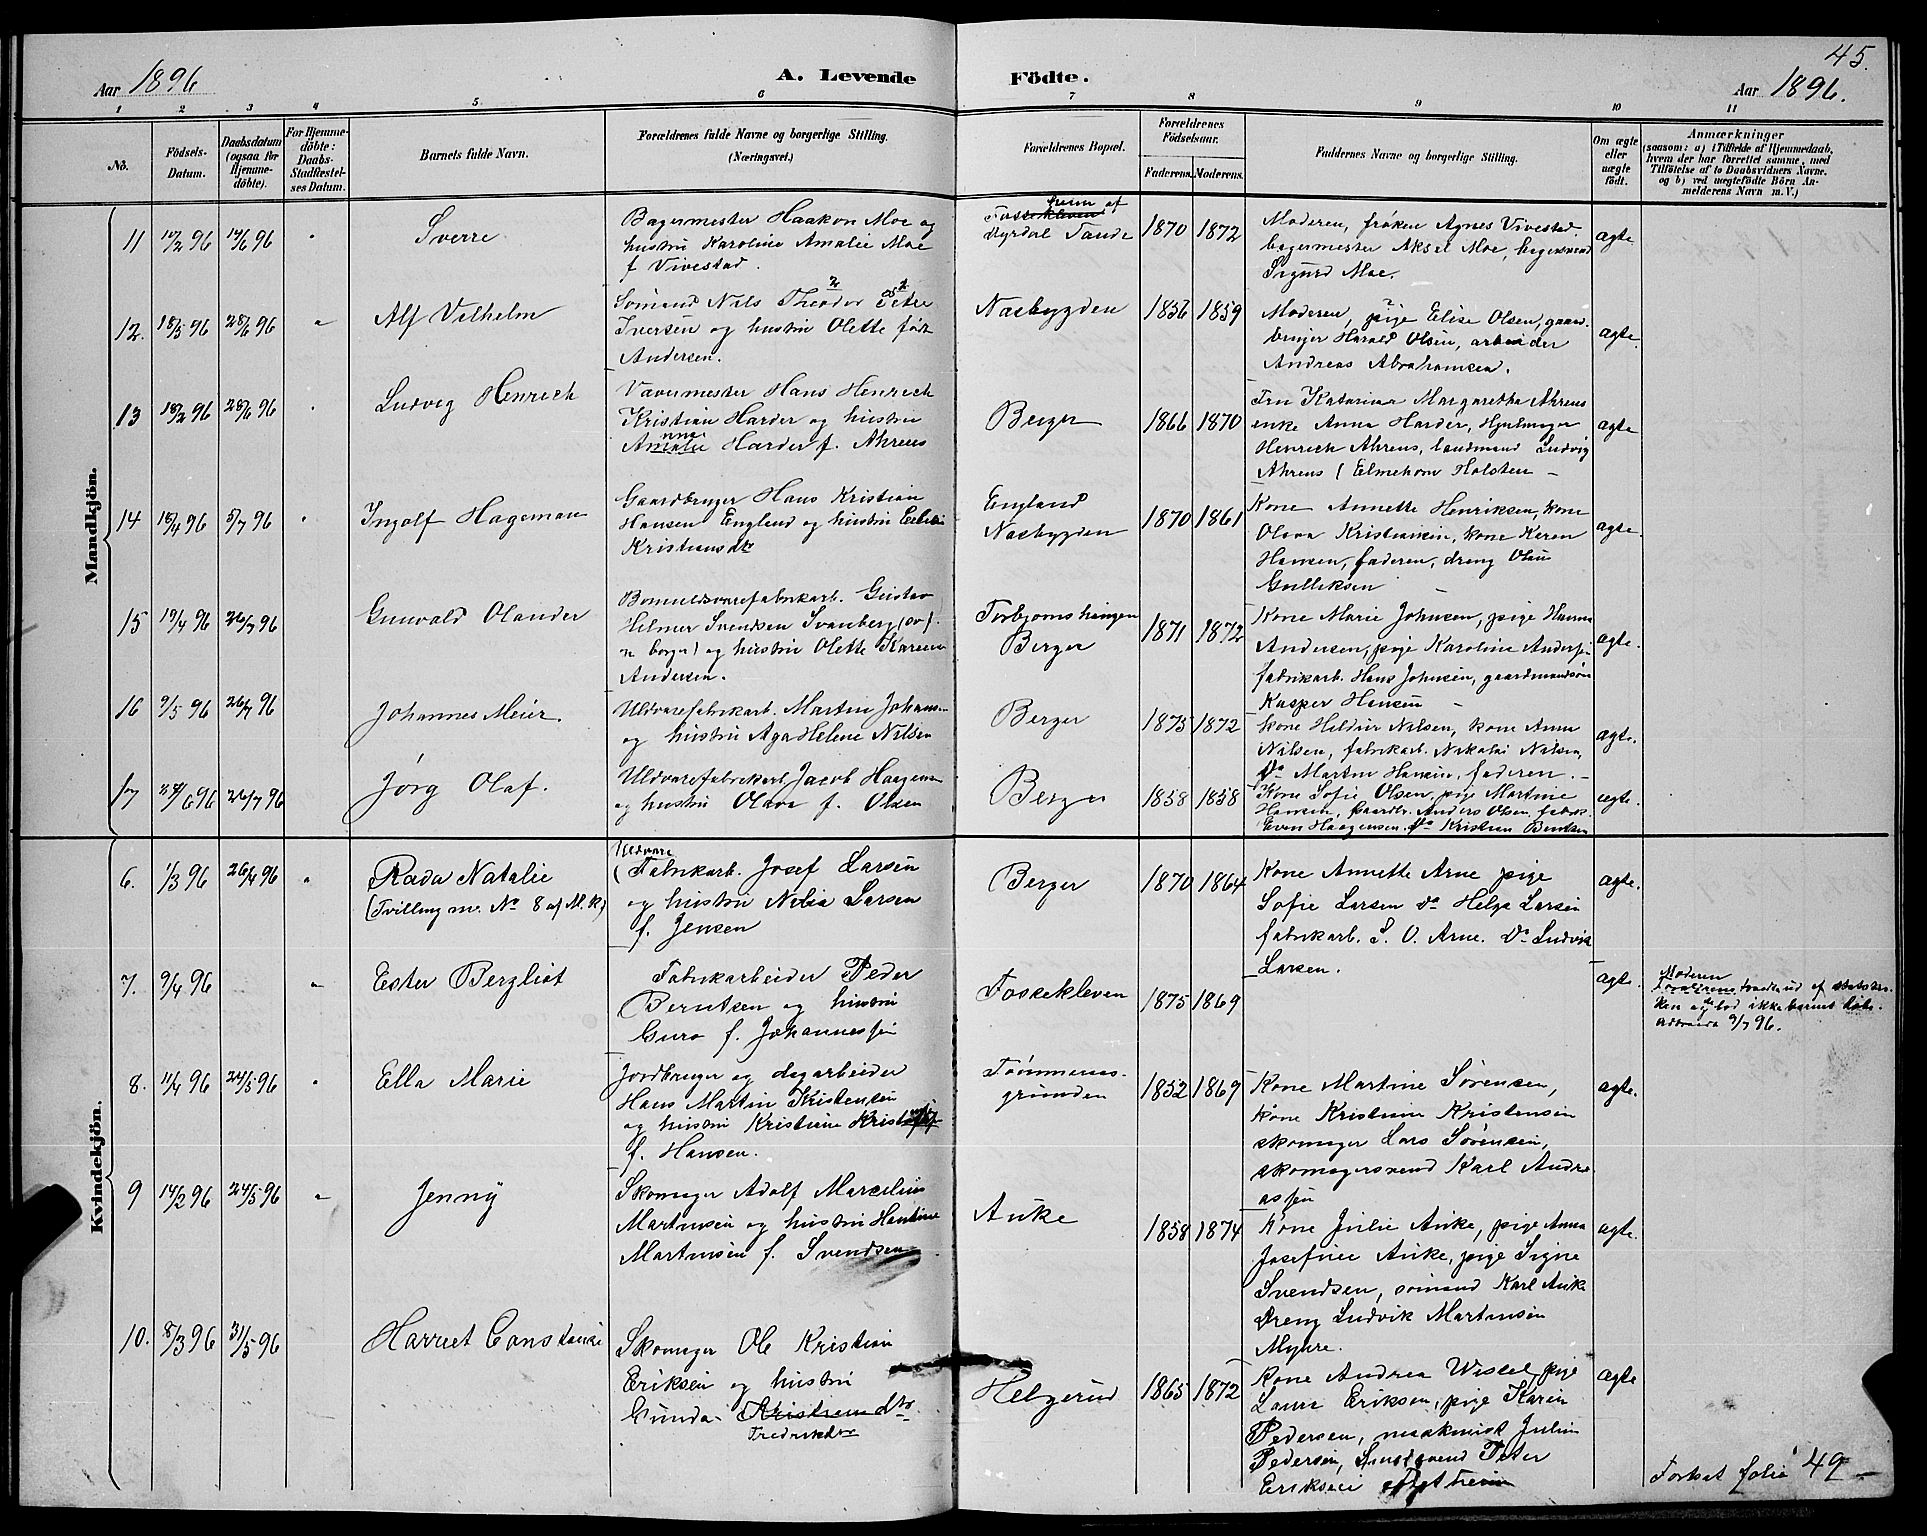 45.
Aar 1896
A. Levende Födte.
Aar 1896.
1 2 3 4 5 6 7 8 9 10 11
No.
Födsels-Datum.
Daabsdatum (ogsaa for Hjemme-döbte).
For Hjemme-döbte: Daabs-Stadfæstel-ses Datum.
Barnets fulde Navn.
Forældrenes fulde Navne og borgerlige Stilling.
(Næringsvei.)
Forældrenes Bopæl.
Forældrenes Födselsaar.
Faderens. Moderens.
Faddernes Navne og borgerlige Stilling.
Om ægte eller uægte födt.
Anmærkninger
(saasom: a) i Tilfælde af Hjemmedaab,
hvem der har forrettet samme, med
Tilföielse af to Daabsvidners Navne.
og b) ved uægtefödte Börn An-
melderens Navn m. V.)
Mandkjön.
11 12/2 96 14/6 96 " Sverre
Bagermester Haakon Moe og
hustru Karoline Amalie Moe
f Vivestad.
Fossekleven
Myrdal Sande
1870 1872
Moderen, frøken Agnes Vivestad
bagermester Aksel Moe, bagersvend
Sigurd Moe.
ægte
12. 18/5 96 28/6 96 " Alf Vilhelm
Sømand Nils Theodor Peter
Iversen og hustru Olette født
Andersen.
Næsbygden
1856 1859
Moderen, pige Elise Olsen, gaard-
bruger Harald Olsen, arbeider
Andreas Abrahamsen.
ægte.
13 18/2 96 28/6 96 " Ludvig Henrich
Vævermester Hans Henrich
Kristian Harder og hustru
Amalie Harder f. Ahrens
Berger
1866 1870
Fru Katarina Margaretha Ahrens
enke Anna Harder, Hjulmager
Henrich Ahrens, landmand Ludvig
Ahrens (Elmshorn Holsten –
ægte
14 18/4 96 5/7 96 " Ingolf Hageman
Gaardbruger Hans Kristian
Hansen Englend og hustru
Kristiansdtr
England
Næsbygden
1870 1861
Kone Annette Henriksen, kone
Olava Kristiansen, kone Karen
Hansen, faderen, dreng Olaus
Gulliksen –
ægte.
15 19/4 96 26/7 96 Gunvald Olander
Bomuldsvarefabrikarb. Gustav
Helmer Svendsen Svanberg (sv)
n borger) og hustru Olette Karen
Andersen.
Berger
1871 1872
Kone Marie Johnsen, pige Hanna
Andersen, pige Karoline Andersen
fabrikarb. Hans Johnsen, gaardmandsøn
Kasper Hansen –
ægte.
16 9/5 96 26/7 96 Johannes Meier.
Uldvarefabrikarb. Martin Johans-
og hustru Aga Helene Nilsen
Berger
1875 1872
Kone Heldine Nilsen, kone Anna
Nilsen, fabrikarb. Nikolai Nilsen,
Do Martin Hansen, faderen. –
ægte.
17 26/7 96 Jørg Olaf.
Uldvarefabrikarb Jacob Haagensen
og hustru Olava f. Olsen
Berger
1858 1858
Kone Sofie Olsen, pige Martine
Hansen, Gaardbr. Anders Olsen, fabrik.
Even Haagensen. Do Kristian Bentsen
ægte.
Kvindekjön.
6. 1/3 96 26/4 96 "
Ræda Natalie
(Tvilling m. No 8 af M. K)
Uldvare
(Fabrikarb. Josef Larsen
og hustru Nilia Larsen
f. Jensen
Berger
1870 1864
Kone Annette Arne pige
Sofie Larsen Do Helga Larsen
fabrikarb. S. O. Arne. Do Ludvik
Larsen.
ægte.
7. 9/4 96 " Ester Bergliot
Fabrikarbeider Peder
Berntsen og hustru
Guro f. Johannessen
Fossekleven
1875 1869
ægte.
Moderen
Forældrene traadt ud af statskir-
ken og lod ikke barnet døbe.
9/7 96.
8. 11/4 96 24/5 96 " Ella Marie
Jordbruger og dagarbeider
Hans Martin Kristensen
og hustru Kristine
f. Hansen.
Tømmeraas-
grunden
1852 1869
Kone Martine Sørensen,
kone Kristine Kristensen
skomager Lars Sørensen,
skomagersvend Karl Andre-
assen
ægte.
9 14/2 96 24/5 96 " Jenny
Skomager Adolf Marcelius
Martinsen og hustru Hantine
Martinsen f. Svendsen
Auke
1858 1874
Kone Julie Auke, pige Anna
Josefine Auke, pige Signe
Svendsen, sømand Karl Auke
Dreng Ludvik Martinsen
Myhre.
ægte.
10. 8/3 96 31/5 96 Harriet Constanse
Skomager Ole Kristian
Eriksen og hustru
Gunda Kristiansdtr
Fredriksdtr
Helgerud
1865 1872
Kone Andrea Wistel, pige
Laura Eriksen, pige Karen
Pedersen, maskinist Julius
Pedersen, Smedsvend Peter
Eriksen
ægte
Fortsat folio 49 –